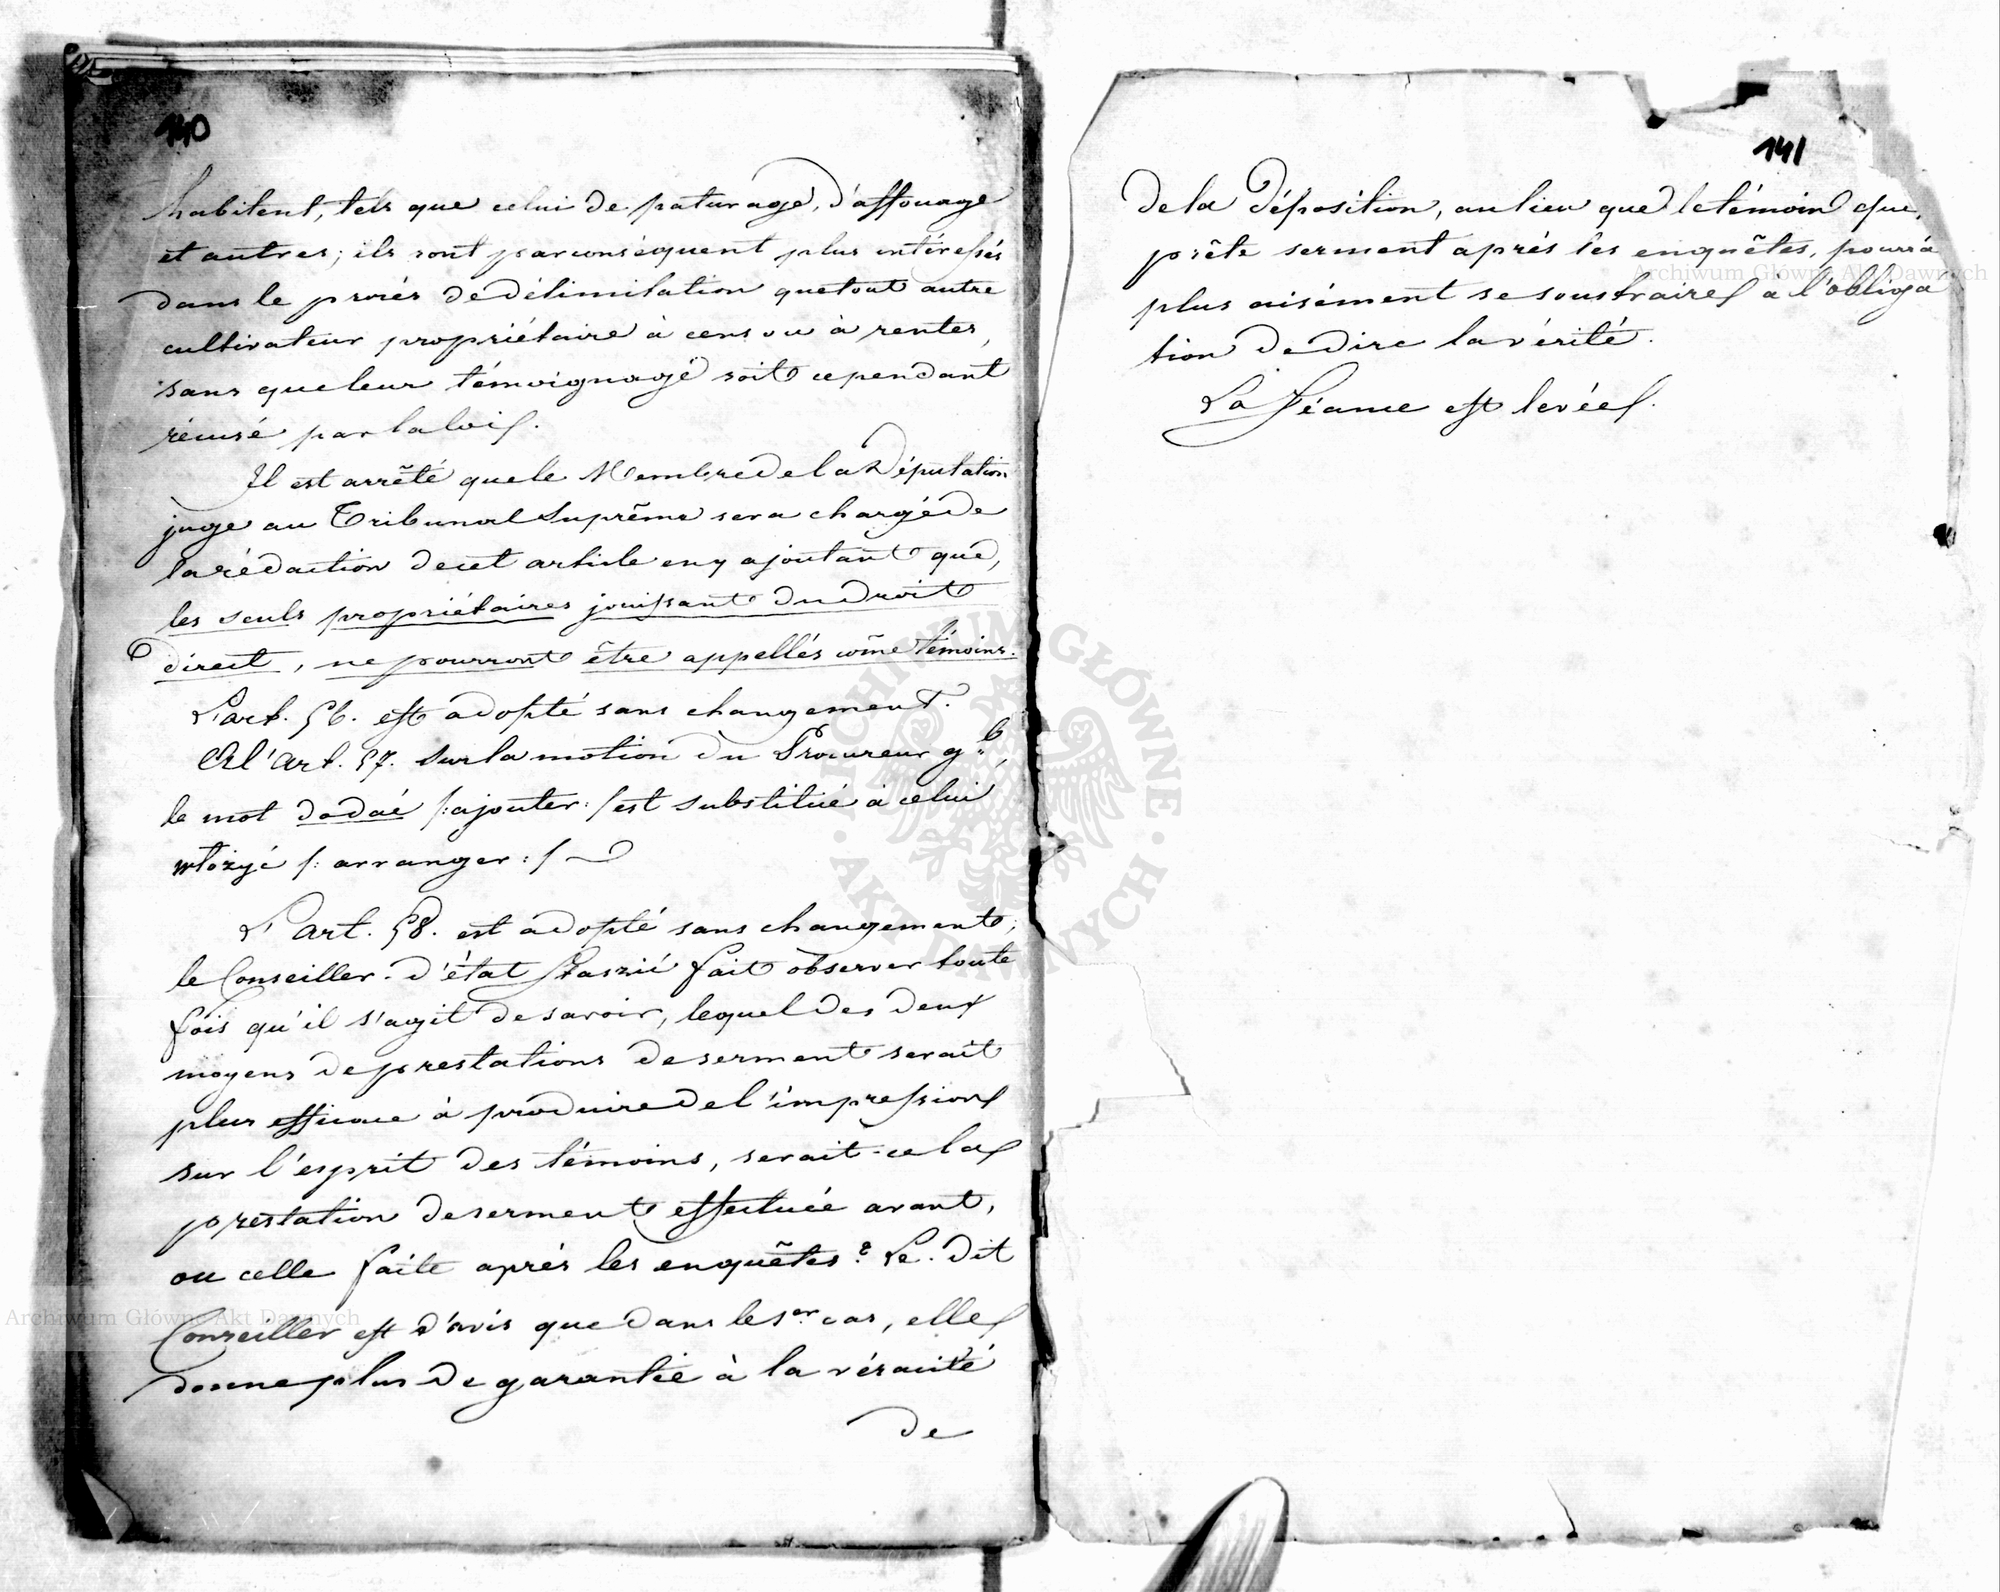 140
habitent, tels que celui de paturage, d'affouage
et autres; ils sont parconséquent plus intéressés
dans le procès de délimitation que tout autre
cultivateur propriétaire à cens ou à rentes,
sans que leur témoignage soit cependant
récusé par la loi.
Il est arrêté que le Membre de la Députation
juge au Tribunal Suprême sera chargé de
la rédaction de cet article en y ajoutant que,
les seuls propriétaires jouissant du droit
direct, ne pourront être appellés come témoins.
L'art. 56. est adopté sans changement.
A l'art. 57. sur la motion du Procureur gal,
le mot dodać /: ajouter :/ est substitué à celui
włożyć /: arranger :/
L'art. 58. est adopté sans changement;
le Conseiller d'état Staszic fait observer toute
fois qu'il s'agit de savoir, lequel des deux
moyens de prestations de serment serait
plus efficace à produire de l'impression
sur l'esprit des témoins, serait-ce la
prestation de serment effectuée avant,
ou celle faite après les enquêtes? Le dit
Conseiller est d'avis que dans le 1er cas, elle
donne plus de garantie à la véracité
de
141
de la déposition, au lieu que le témoin que,
prête serment après les enquêtes, pourra
plus aisément se soustraire à l'obliga
tion de dire la vérité.
La Séance est levée.
Archiwum Główne Akt Dawnych
Archiwum Główne Akt Dawnych
ARCHIWUM GŁÓWNE · AKT DAWNYCH ·